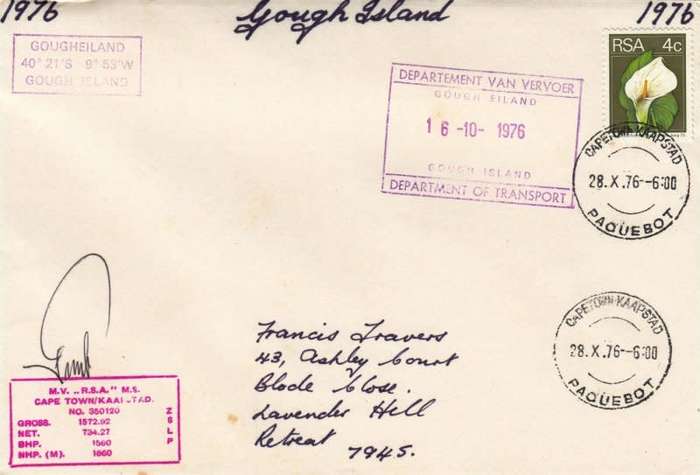 1976
Gough Island
1976
GOUGHEILAND
40° 21'S 9° 53'W
GOUGH ISLAND
DEPARTEMENT VAN VERVOER
GOUGH EILAND
16-10-1976
GOUGH ISLAND
DEPARTMENT OF TRANSPORT
RSA 4c
CAPETOWN-KAAPSTAD
28.X.76--6:00
PAQUEBOT
CAPETOWN-KAAPSTAD
28.X.76--6:00
PAQUEBOT
Francis Travers
43, Ashley Court
Blode Close.
Lavender Hill
Retreat 7945.
M.V. „R.S.A." M.S.
CAPE TOWN/KAAPSTAD.
NO. 350120
GROSS. 1572.92
NET. 734.27
BHP. 1560
NHP. (M). 1860
Z S L P